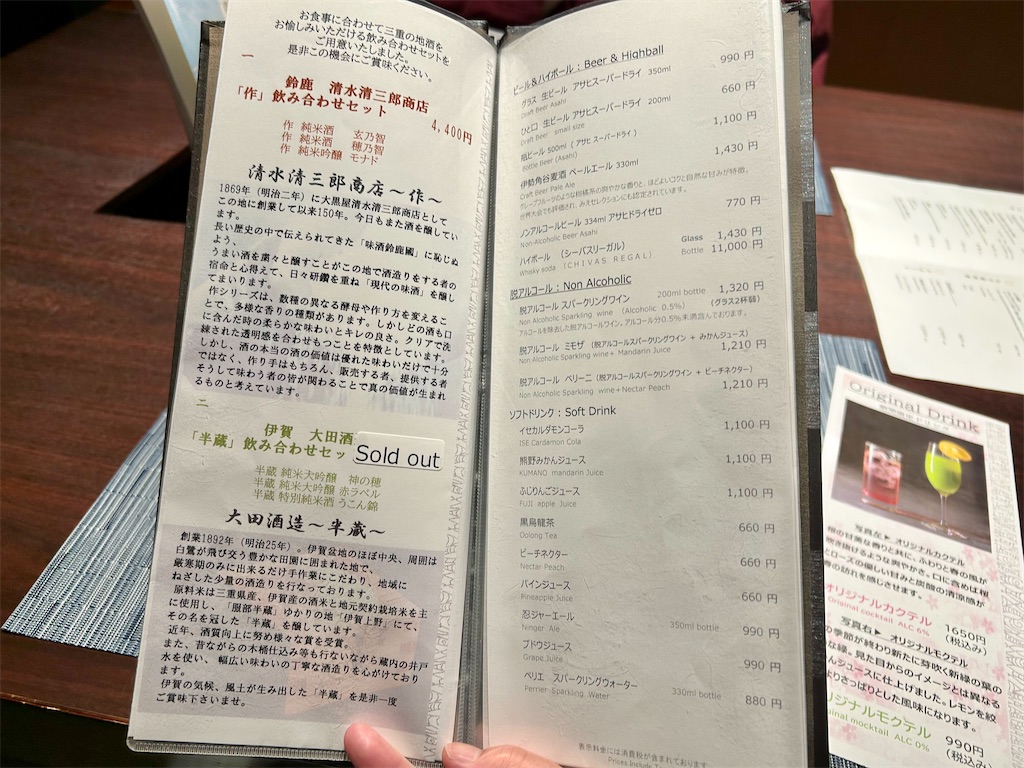 お食事に合わせて三重の地酒を
お愉しみいただける飲み合わせセットを
ご用意いたしました。
是非この機会にご賞味ください。
一
鈴鹿 清水清三郎商店
「作」飲み合わせセット
4,400円
作 純米酒 玄乃智
作 純米酒 穂乃智
作 純米吟醸 モナド
清水清三郎商店～作～
1869年（明治二年）に大黒屋清水清三郎商店として
この地に創業して以来150年。今日もまた酒を醸してい
ます。
長い歴史の中で伝えられてきた「味酒鈴鹿國」に恥じぬ
よう、
うまい酒を粛々と醸すことがこの地で酒造りをする者の
宿命と心得えて、日々研鑽を重ね「現代の味酒」を醸し
てまいります。
作シリーズは、数種の異なる酵母や作り方を変えるこ
とで、多様な香りの種類があります。しかしどの酒も口
に含んだ時の柔らかな味わいとキレの良さ。クリアで洗
練された透明感を合わせもつことを特徴としています。
しかし、酒の本当の酒の価値は優れた味わいだけで十分
ではなく、作り手はもちろん、販売する者、提供する者
そうして味わう者の皆が関わることで真の価値が生まれ
るものと考えています。
二
伊賀 大田酒
「半蔵」飲み合わせセッ
Sold out
半蔵 純米大吟醸 神の穂
半蔵 純米大吟醸 赤ラベル
半蔵 特別純米酒 うこん錦
大田酒造～半蔵～
創業1892年（明治25年）。伊賀盆地のほぼ中央、周囲は
白鷺が飛び交う豊かな田園に囲まれた地で、
厳寒期のみに出来るだけ手作業にこだわり、地域に
ねざした少量の酒造りを行なっております。
原料米は三重県産、伊賀産の酒米と地元契約栽培米を主
に使用し、「服部半蔵」ゆかりの地「伊賀上野」にて、
その名を冠した「半蔵」を醸しています。
近年、酒質向上に努め様々な賞を受賞。
また、昔ながらの木桶仕込み等も行いながら蔵内の井戸
水を使い、幅広い味わいの丁寧な酒造りを心がけており
ます。
伊賀の気候、風土が生み出した「半蔵」を是非一度
ご賞味下さいませ。
ビール&ハイボール : Beer & Highball
グラス 生ビール アサヒスーパードライ 350ml 990 円
Draft Beer Asahi
ひと口 生ビール アサヒスーパードライ 200ml 660 円
Draft Beer small size
瓶ビール 500ml ( アサヒ スーパードライ ) 1,100 円
Bottle Beer (Asahi)
伊勢角谷麦酒 ペールエール 330ml 1,430 円
Craft Beer Pale Ale
グレープフルーツのような柑橘系の爽やかな香りと、ほどよいコクと自然な甘みが特徴。
世界大会でも評価され、みえセレクションにも認定されています。
ノンアルコールビール 334ml アサヒドライゼロ 770 円
Non-Alcoholic Beer Asahi
ハイボール （シーバスリーガル） Glass 1,430 円
Whisky soda （CHIVAS REGAL） Bottle 11,000 円
脱アルコール : Non Alcoholic
脱アルコール スパークリングワイン 200ml bottle 1,320 円
Non Alcoholic Sparkling wine (Alcoholic 0.5%) （グラス2杯弱）
アルコールを除去した脱アルコールワイン。アルコール分0.5%未満含んでおります。
脱アルコール ミモザ （脱アルコールスパークリングワイン + みかんジュース）
Non Alcoholic Sparkling wine+ Mandarin Juice 1,210 円
脱アルコール ベリーニ（脱アルコールスパークリングワイン + ピーチネクター）
Non Alcoholic Sparkling wine+Nectar Peach 1,210 円
ソフトドリンク : Soft Drink
イセカルダモンコーラ 1,100 円
ISE Cardamon Cola
熊野みかんジュース 1,100 円
KUMANO mandarin Juice
ふじりんごジュース 1,100 円
FUJI apple Juice
黒烏龍茶 660 円
Oolong Tea
ピーチネクター 660 円
Nectar Peach
パインジュース 660 円
Pineapple Juice
忍ジャーエール 350ml bottle 990 円
Ninger Ale
ブドウジュース 990 円
Grape Juice
ペリエ スパークリングウォーター 330ml bottle 880 円
Perrier Sparkling Water
表示料金には消費税が含まれております。
Prices Include T
Original Drink
写真左▶ オリジナルカクテル
桜の甘美な香りと共に、ふわりと春の風が
吹き抜けるような爽やかさ。口に含めば桜
とローズの優しい甘みと炭酸の清涼感が
春の訪れを感じさせます。
オリジナルカクテル 1650円
Original cocktail ALC 6% （税込み）
写真右▶ オリジナルモクテル
の季節が終わり新たに芽吹く新緑の葉の
な緑。見た目からのイメージとは異なる
んジュースに仕上げました。レモンを絞
よりさっぱりとした風味になります。
リジナルモクテル 990円
ginal mocktail ALC 0% （税込み）